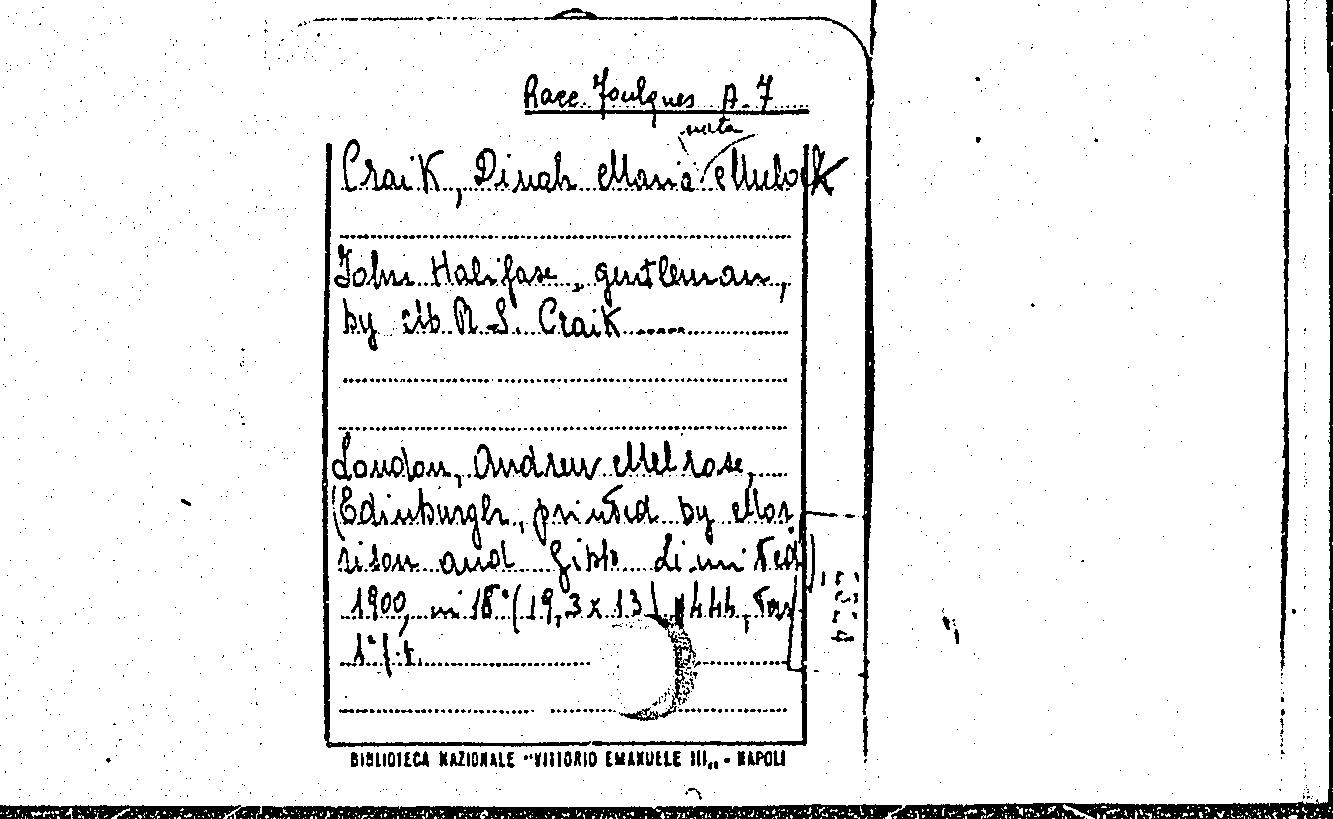 Racc. Foulques A. 7
nata
Craik, Dinah Maria Mulock
John Halifax, gentleman,
by M R.S. Craik ......
London, Andrew Melrose,
(Edinburgh, printed by Mor
rison and Gibb Limited)
1900, in 18° (19,3 x 13) p 444, tav.
1 f.t.
2324
BIBLIOTECA NAZIONALE "VITTORIO EMANUELE III„ - NAPOLI